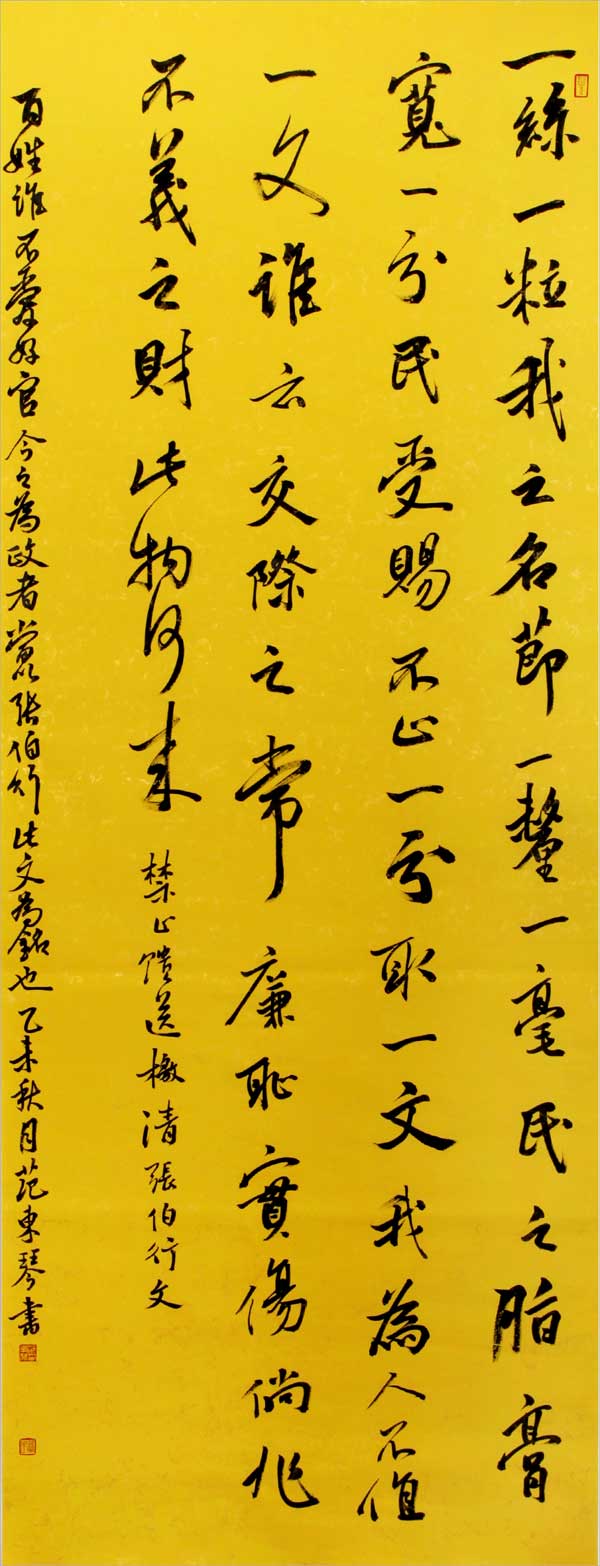 一絲一粒我之名節一釐一毫民之脂膏
寬一分民受賜不止一分取一文我為人不值
一文誰云交際之常廉恥實傷倘非
不義之財此物何來
禁止馈送檄清張伯行文
百姓誰不愛好官今之為政者當以张伯行此文為銘也乙未秋月范東琴書